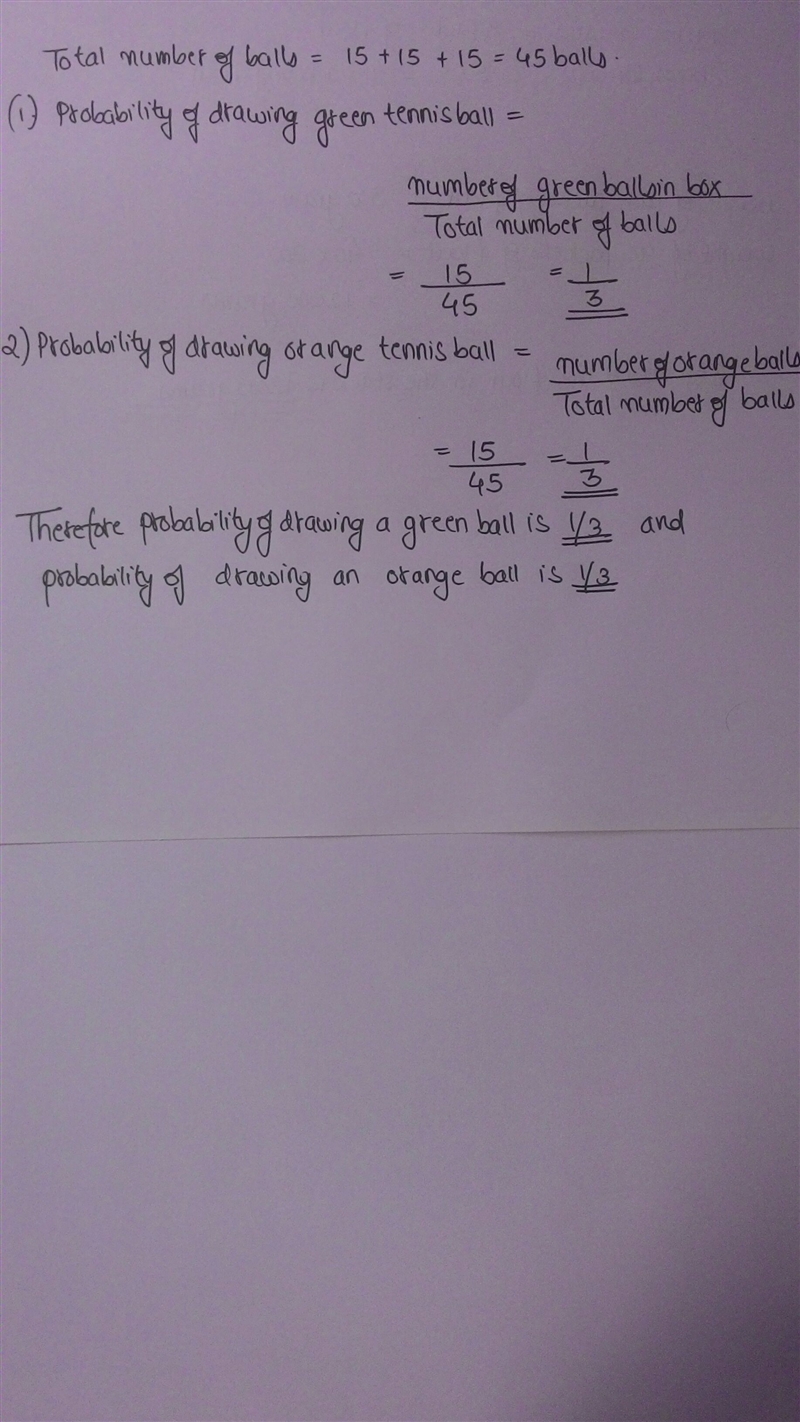 Total number of balls = 15 + 15 + 15 = 45 balls.
(1) Probability of drawing green tennis ball =
number of green balls in box
Total number of balls
= 15/45 = 1/3
2) Probability of drawing orange tennis ball = number of orange balls
Total number of balls
= 15/45 = 1/3
Therefore probability of drawing a green ball is 1/3 and
probability of drawing an orange ball is 1/3